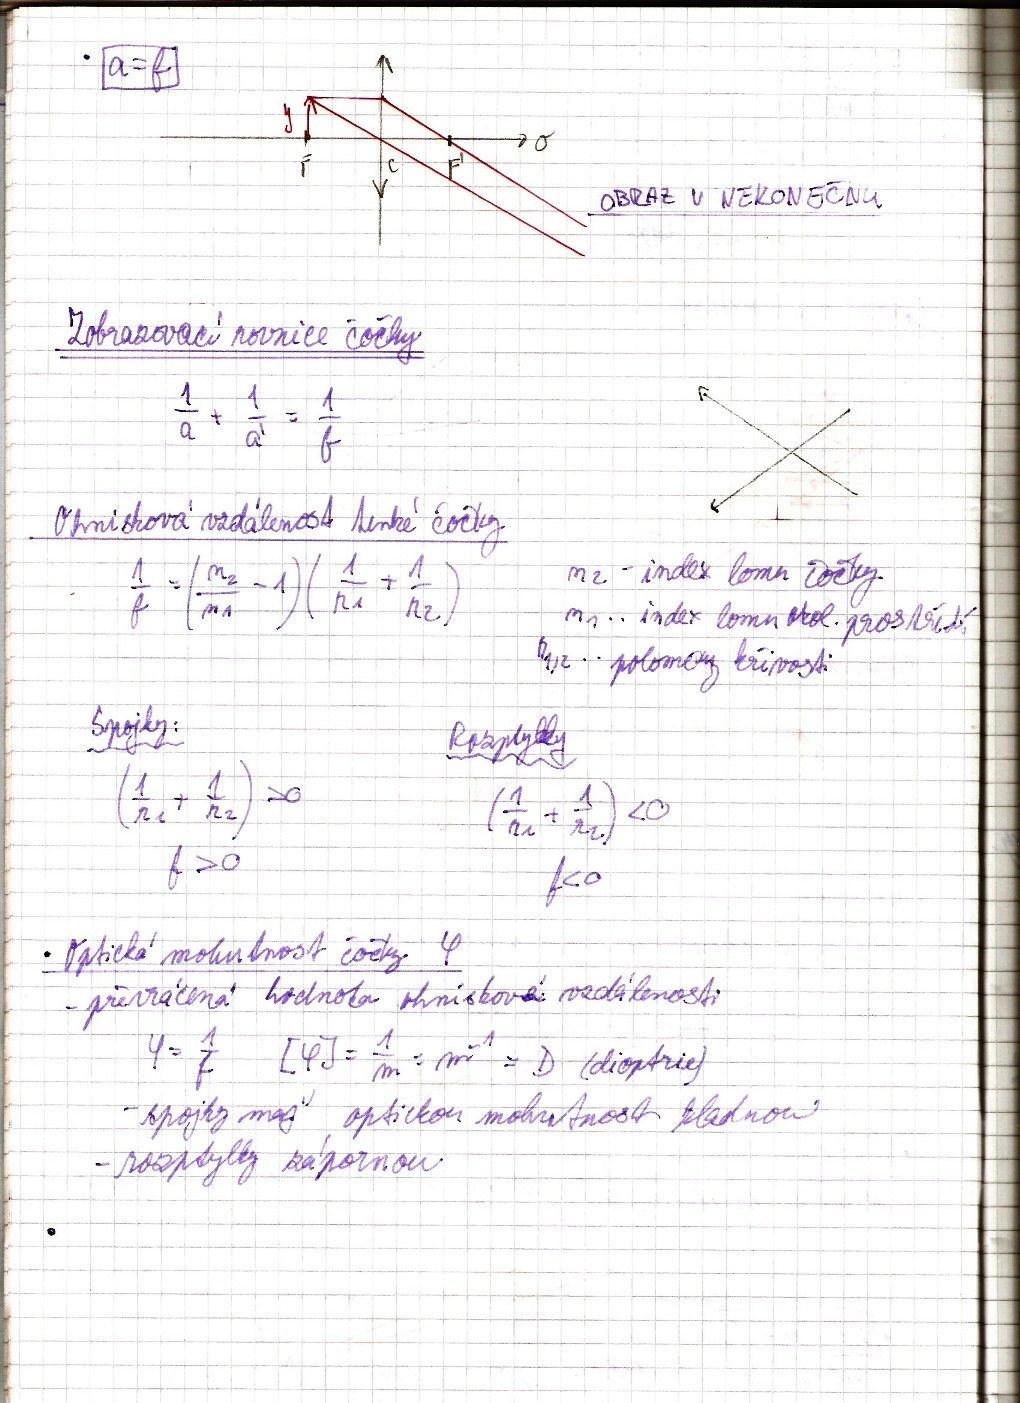 • a = f
y
F
C
F'
o
OBRAZ V NEKONEČNU
Zobrazovací rovnice čočky
1/a + 1/a' = 1/f
Ohnisková vzdálenost tenké čočky
1/f = (n2/n1 - 1)(1/r1 + 1/r2)
n2 - index lomu čočky
n1 .. index lomu okol. prostředí
r1,2 .. poloměry křivosti
Spojky:
(1/r1 + 1/r2) > 0
f > 0
Rozptylky
(1/r1 + 1/r2) < 0
f < 0
• Optická mohutnost čočky φ
- převrácená hodnota ohniskové vzdálenosti
φ = 1/f [φ] = 1/m = m^-1 = D (dioptrie)
- spojky mají optickou mohutnost kladnou
- rozptylky zápornou
•